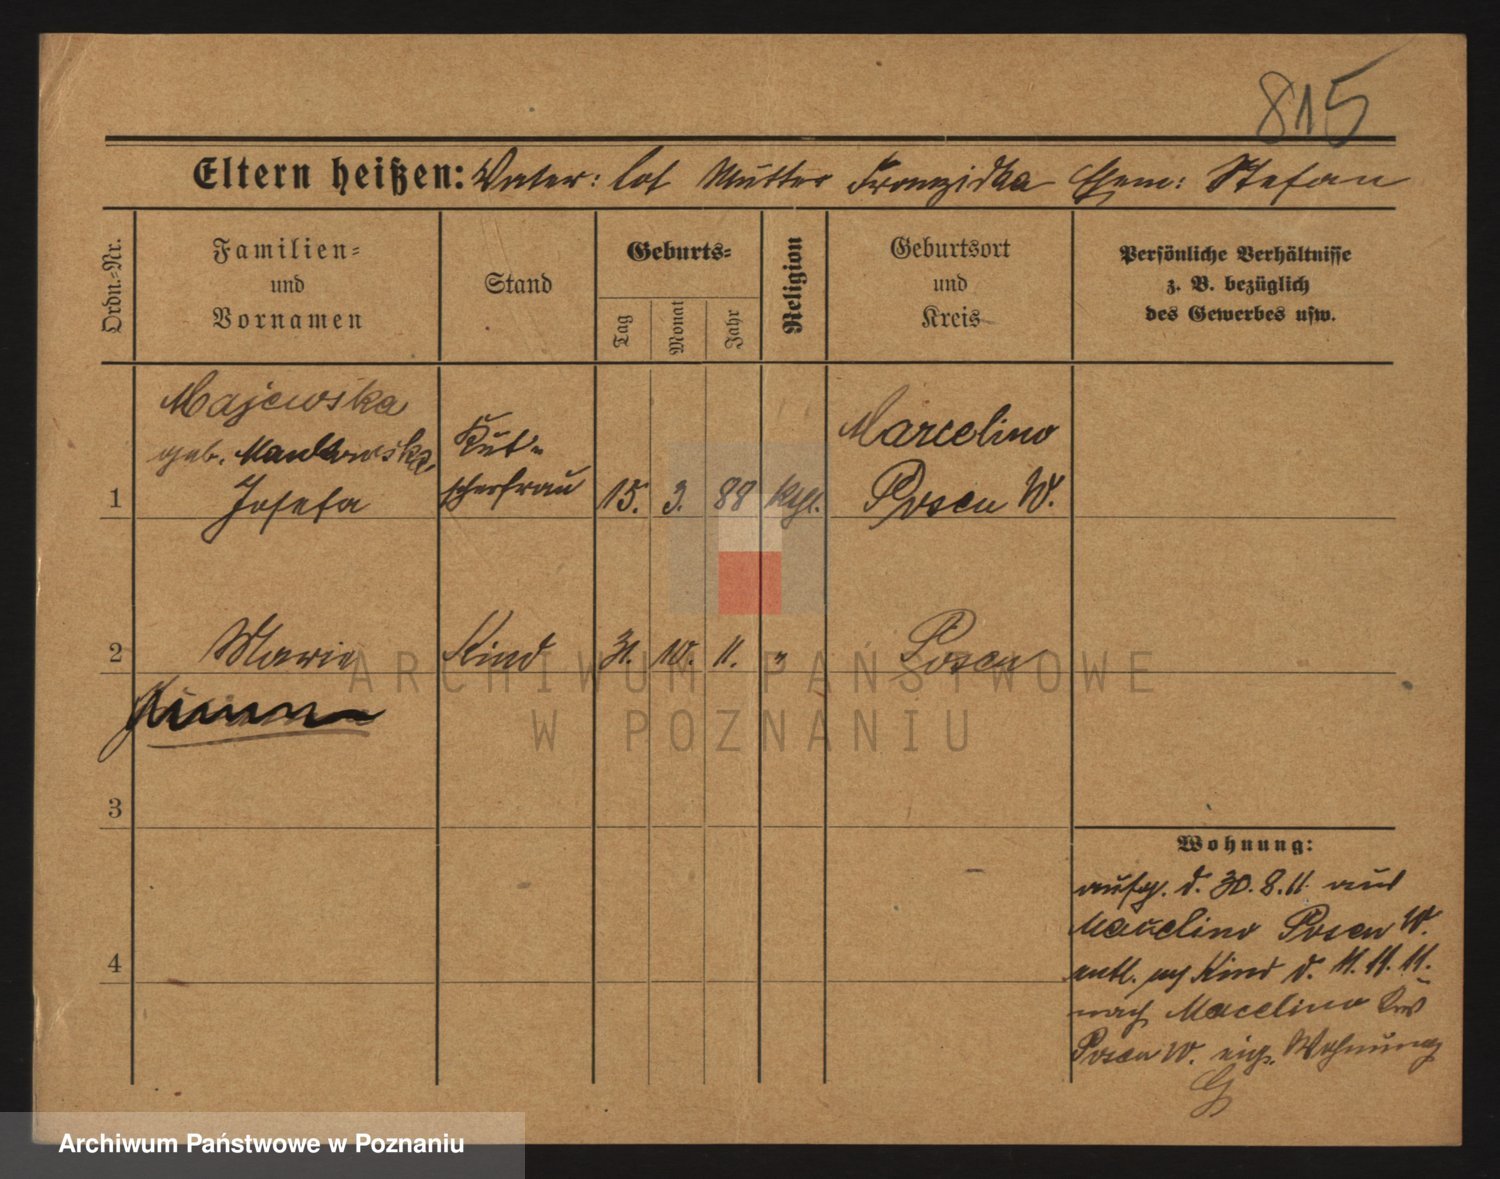 815
Eltern heißen: Vater: tot Mutter Franziska Ehem: Stefan
Ordn.-Nr.
Familien-
und
Vornamen
Stand
Geburts-
Tag
Monat
Jahr
Religion
Geburtsort
und
Kreis
Persönliche Verhältnisse
z. B. bezüglich
des Gewerbes usw.
1
Majewska
geb.
Josefa
Kut-
scherfrau
15. 3. 88 kth.
Marcelino
Posen W.
2
Marie
Kind
31. 10. 11. "
Posen
3
4
Wohnung:
aufg. d. 30. 8. 11. aus
Marcelino Posen W.
entl. m Kind d. 11. 11. 11.
nach Macelino Krs
Posen W. eig. Wohnung
ARCHIWUM PAŃSTWOWE
W POZNANIU
Archiwum Państwowe w Poznaniu